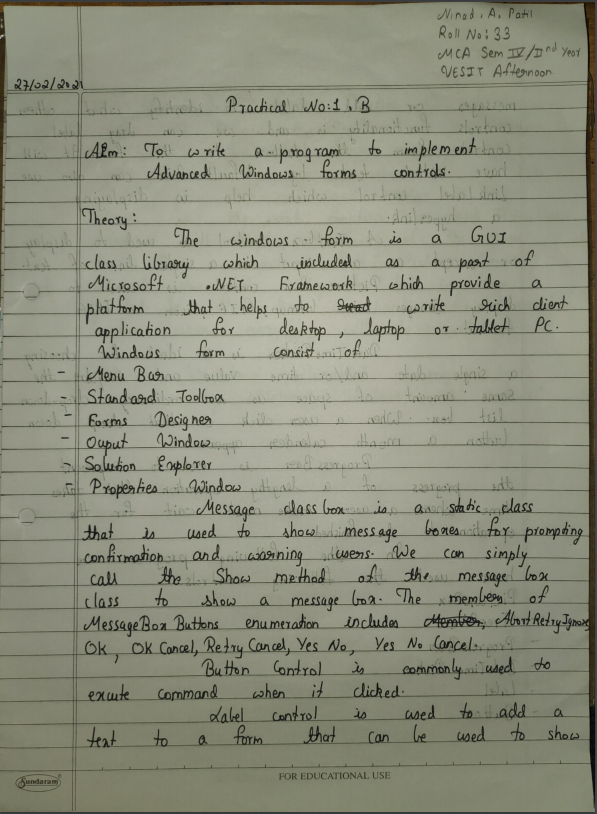 Ninad . A. Patil
Roll No: 33
MCA Sem IV/IInd Year
VESIT Afternoon
27/02/2021
Practical No:1.B
Aim: To write a program to implement
Advanced Windows forms controls.
Theory:
The windows form is a GUI
class library which included as a part of
Microsoft .NET Framework which provide a
platform that helps to write rich client
application for desktop, laptop or tablet PC.
Windows form consist of
- Menu Bar
- Standard Toolbox
- Forms Designer
- Ouput Window
- Solution Explorer
- Properties Window
Message class box is a static class
that is used to show message boxes for prompting
confirmation and warning users. We can simply
call the Show method of the message box
class to show a message box. The members of
MessageBox Buttons enumeration includes Member, AbortRetryIgnore,
OK, OK Cancel, Retry Cancel, Yes No, Yes No Cancel.
Button Control is commonly used to
excute command when it clicked.
Label control is used to add a
text to a form that can be used to show
Sundaram
FOR EDUCATIONAL USE